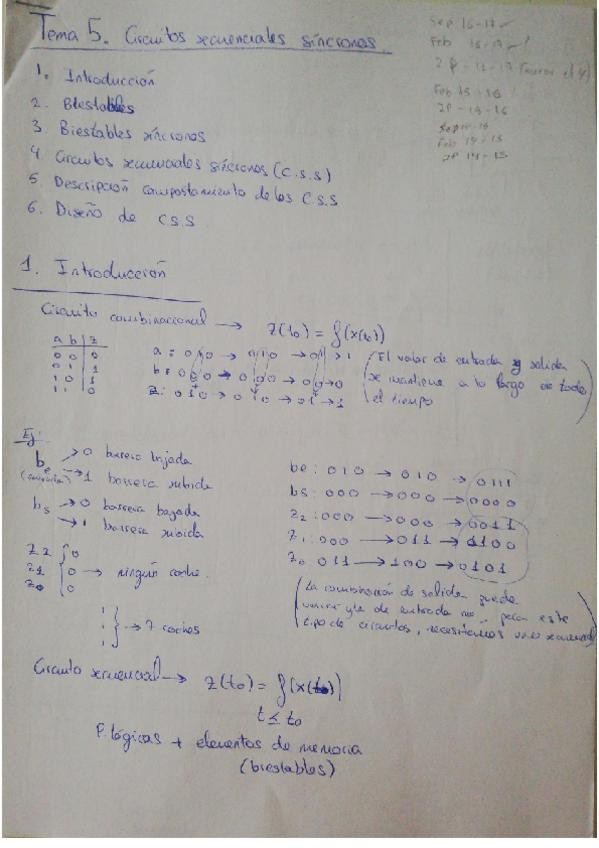 Tema 5. Circuitos secuenciales síncronos.
Sep 16-17
Feb 16-17
2P-16-17
Feb 15-16
2P-15-16
Feb 14-15
2P 14-15
1. Introducción
2. Biestables
3 Biestables síncronos
4 Circuitos secuenciales síncronos (C.S.S)
5. Descripción comportamiento de los C.S.S
6. Diseño de C.S.S
1. Introducción
Circuito combinacional → Z(t₀) = f(x(t₀))
a b z
0 0 0
0 1 1
1 0 1
1 1 0
a : 0 1 0 → 0 1 0 → 0 1 → 1
b : 0 0 0 → 0 0 0 → 0 0 → 0
z : 0 1 0 → 0 1 0 → 0 1 → 1
(El valor de entrada y salida
se mantiene a lo largo de todo
el tiempo
Ej:
be → 0 barrera bajada
→ 1 barrera subida
bs → 0 barrera bajada
→ 1 barrera subida
Z2 0
Z1 0 → ningún coche.
Z0 0
1
1 → 7 coches
1
be : 0 1 0 → 0 1 0 → 0 1 1 1
bs : 0 0 0 → 0 0 0 → 0 0 0 0
Z2 : 0 0 0 → 0 0 0 → 0 0 1 1
Z1 : 0 0 0 → 0 1 1 → 1 1 0 0
Z0 0 1 1 → 1 0 0 → 0 1 0 1
(La combinación de salida puede
variar y la de entrada no, para este
tipo de circuitos, necesitamos uno secuencial
Circuito secuencial → Z(t₀) = f(x(t))
t ≤ t₀
P. lógicas + elementos de memoria
(biestables)